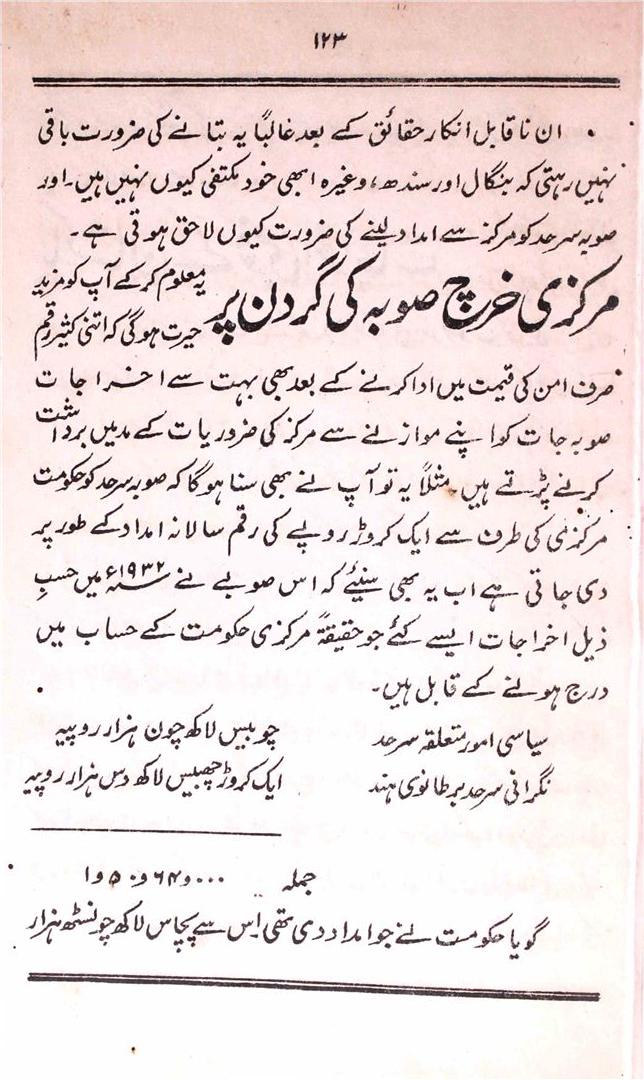 ۱۲۳
ان ناقابل انکار حقائق کے بعد غالباً یہ بتانے کی ضرورت باقی
نہیں رہتی کہ بنگال اور سندھ، وغیرہ ابھی خود مکتفی کیوں نہیں ہیں۔ اور
صوبہ سرحد کو مرکز سے امداد لینے کی ضرورت کیوں لاحق ہوتی ہے۔
مرکزی خرچ صوبہ کی گردن پر
یہ معلوم کر کے آپ کو مزید
حیرت ہوگی کہ اتنی کثیر رقم
صرف امن کی قیمت میں ادا کرنے کے بعد بھی بہت سے اخراجات
صوبہ جات کو اپنے موازنے سے مرکز کی ضروریات کے مد میں برداشت
کرنے پڑتے ہیں۔ مثلاً یہ تو آپ نے بھی سنا ہوگا کہ صوبہ سرحد کو حکومت
مرکزی کی طرف سے ایک کروڑ روپے کی رقم سالانہ امداد کے طور پر
دی جاتی ہے اب یہ بھی سنیئے کہ اس صوبے نے ۱۹۳۲ء میں حسبِ
ذیل اخراجات ایسے کئے جو حقیقۃً مرکزی حکومت کے حساب میں
درج ہونے کے قابل ہیں۔
سیاسی امور متعلقہ سرحد چوبیس لاکھ چون ہزار روپیہ
نگرانی سرحد برطانوی ہند ایک کروڑ چھبیس لاکھ دس ہزار روپیہ
جملہ ۱و۵۰و۶۴و۰۰۰
گویا حکومت نے جو امداد دی تھی اس سے پچاس لاکھ چونسٹھ ہزار